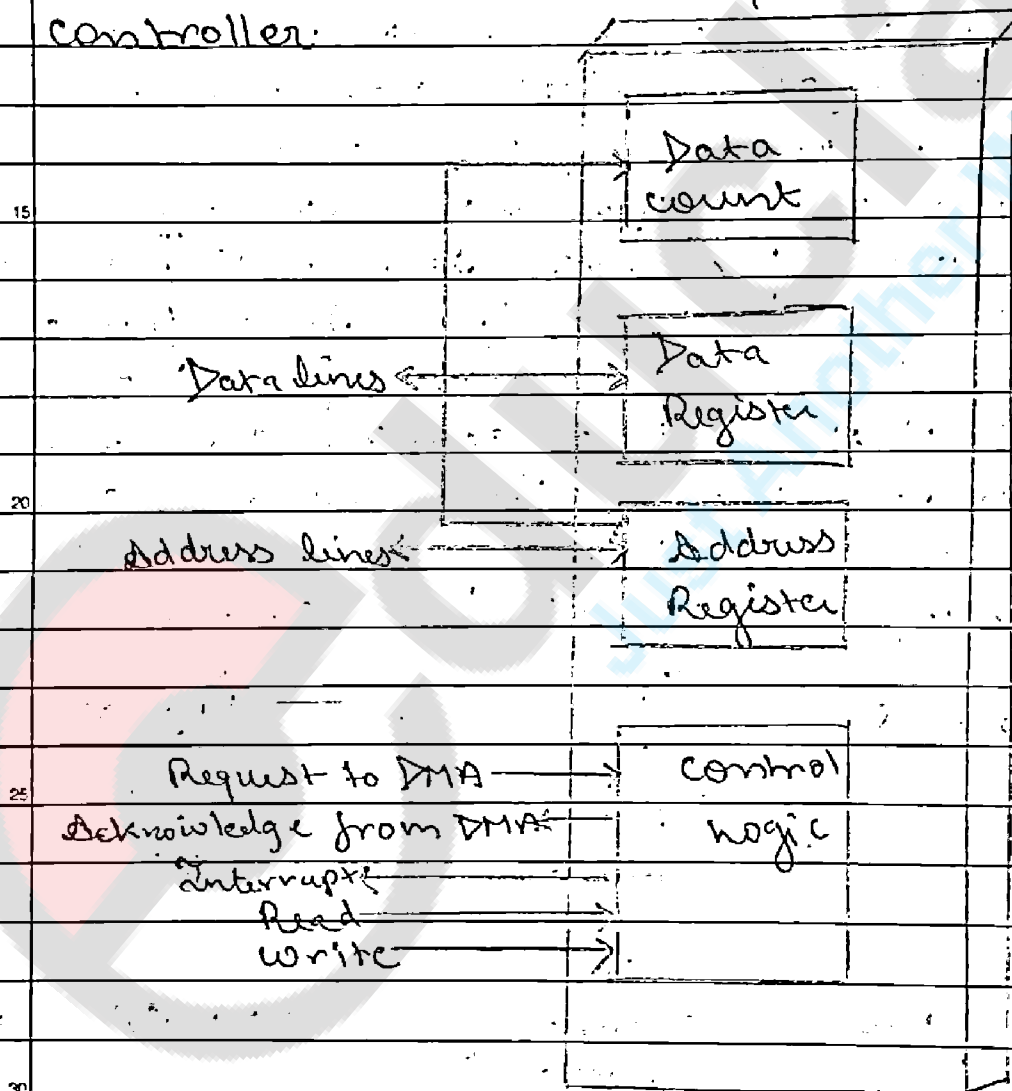 controller.
Data
count
15
Data lines
Data
Register
20
Address lines
Address
Register
Request to DMA
control
25
Acknowledge from DMA
Logic
Interrupt
Read
write
30
Just Another